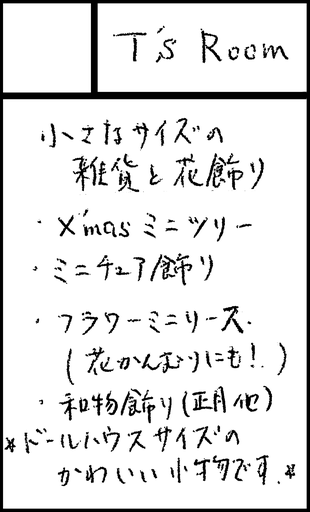 T's Room
小さなサイズの
雑貨と花飾り
・X'masミニツリー
・ミニチュア飾り
・フラワーミニリース.
(花かんむりにも!.)
・和物飾り(正月他)
*ドールハウスサイズの
かわいい小物です.*